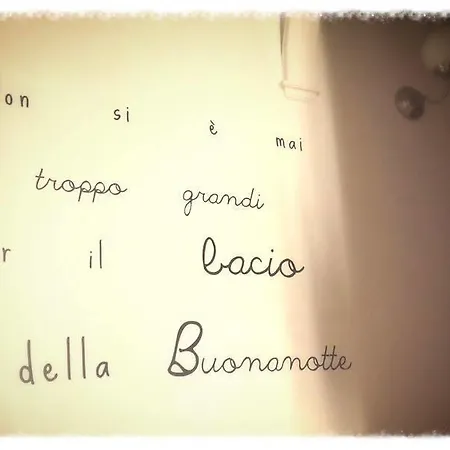 on si è mai
troppo grandi
r il bacio
della Buonanotte